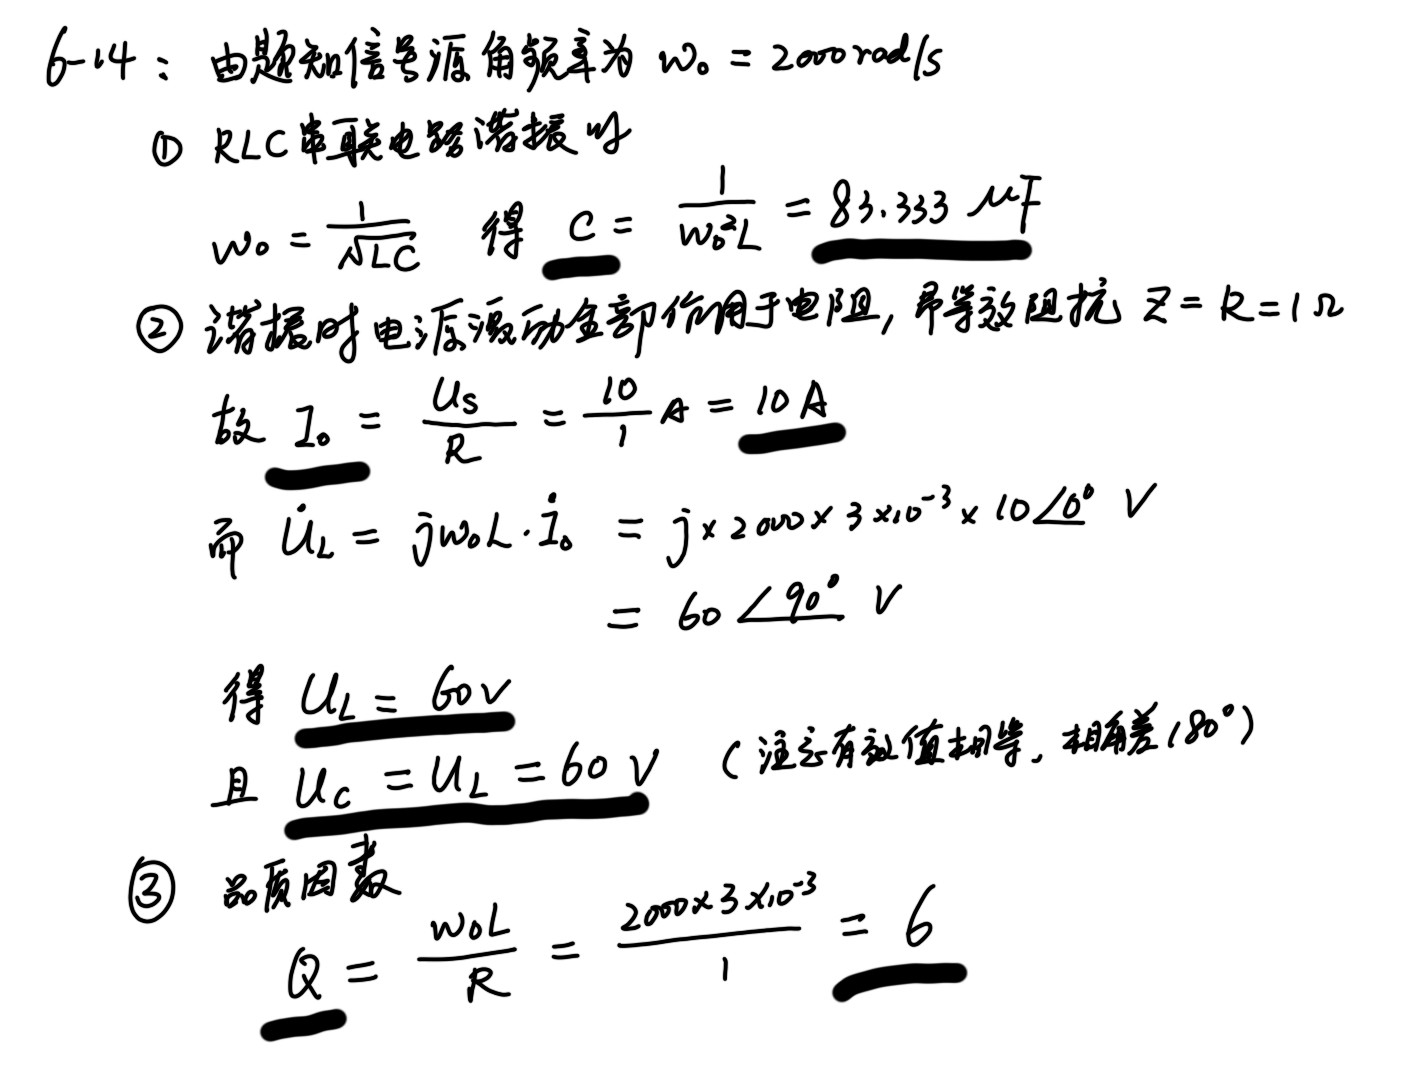 6-14: 由题知信号源角频率为 w₀ = 2000 rad/s
① RLC串联电路谐振时
w₀ = 1/√LC 得 C = 1/w₀²L = 83.333 μF
② 谐振时电源激励全部作用于电阻, 即等效阻抗 Z = R = 1Ω
故 I₀ = Us/R = 10/1 A = 10 A
而 U̇L = jw₀L·İ₀ = j×2000×3×10⁻³×10∠0° V
= 60∠90° V
得 UL = 60V
且 Uc = UL = 60 V (注意有效值相等, 相角差180°)
③ 品质因数
Q = w₀L/R = 2000×3×10⁻³/1 = 6